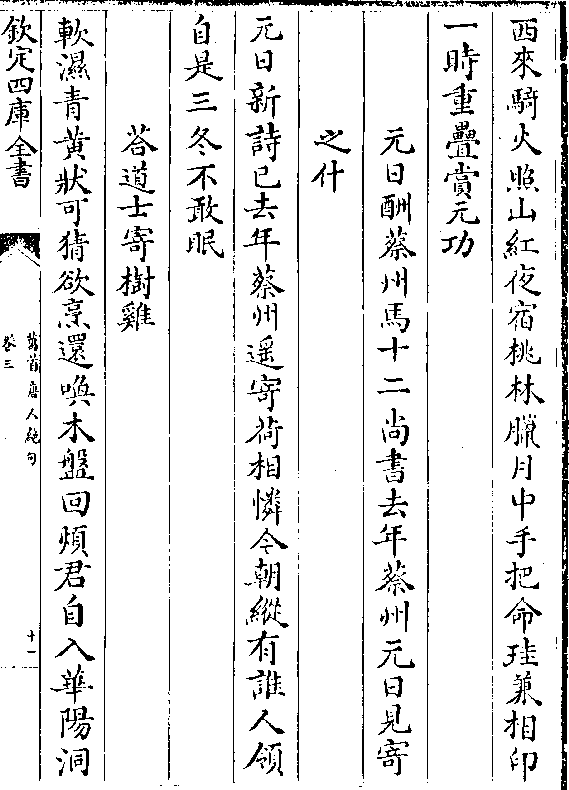 西來騎火照山紅夜宿桃林臘月中手把命珪兼相印
一時重疊賞元功
元日酬蔡州馬十二尚書去年蔡州元日見寄
之什
元日新詩已去年蔡州遥寄荷相憐今朝縱有誰人領
自是三冬不敢眠
荅道士寄樹雞
軟濕青黄狀可猜欲烹還喚木盤回煩君自入華陽洞
欽定四庫全書
萬首唐人絶句
卷三
十一